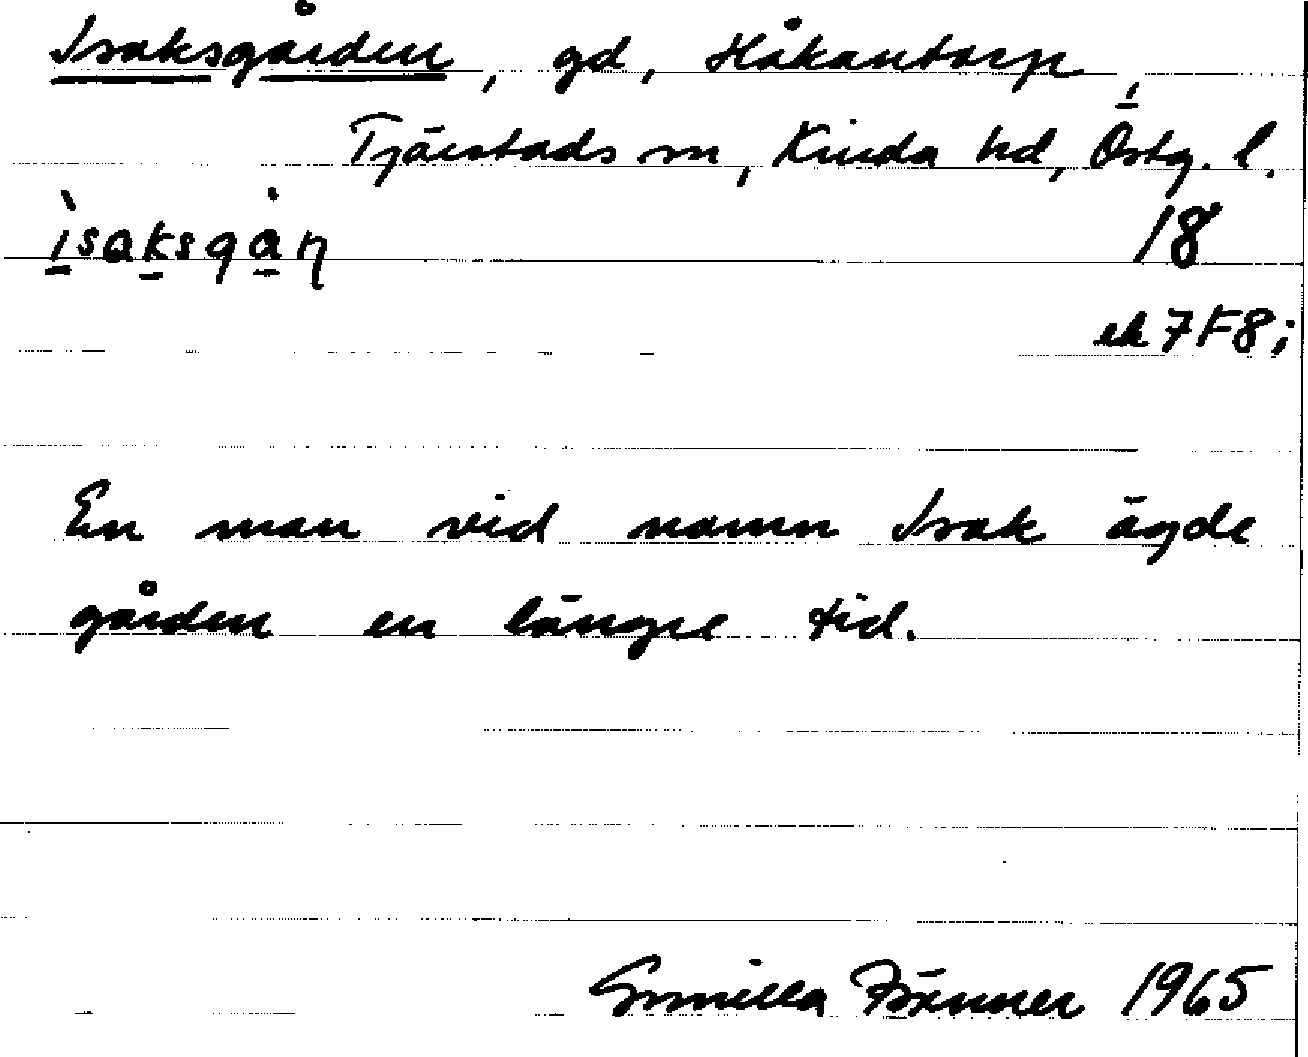 Isaksgården, gd, Håkantorp,
Tjärstads sn, Kinda hd, Östg. l.
ìsaksgàn 18
ek 7F8;
En man vid namn Isak ägde
gården en längre tid.
Gunilla 1965